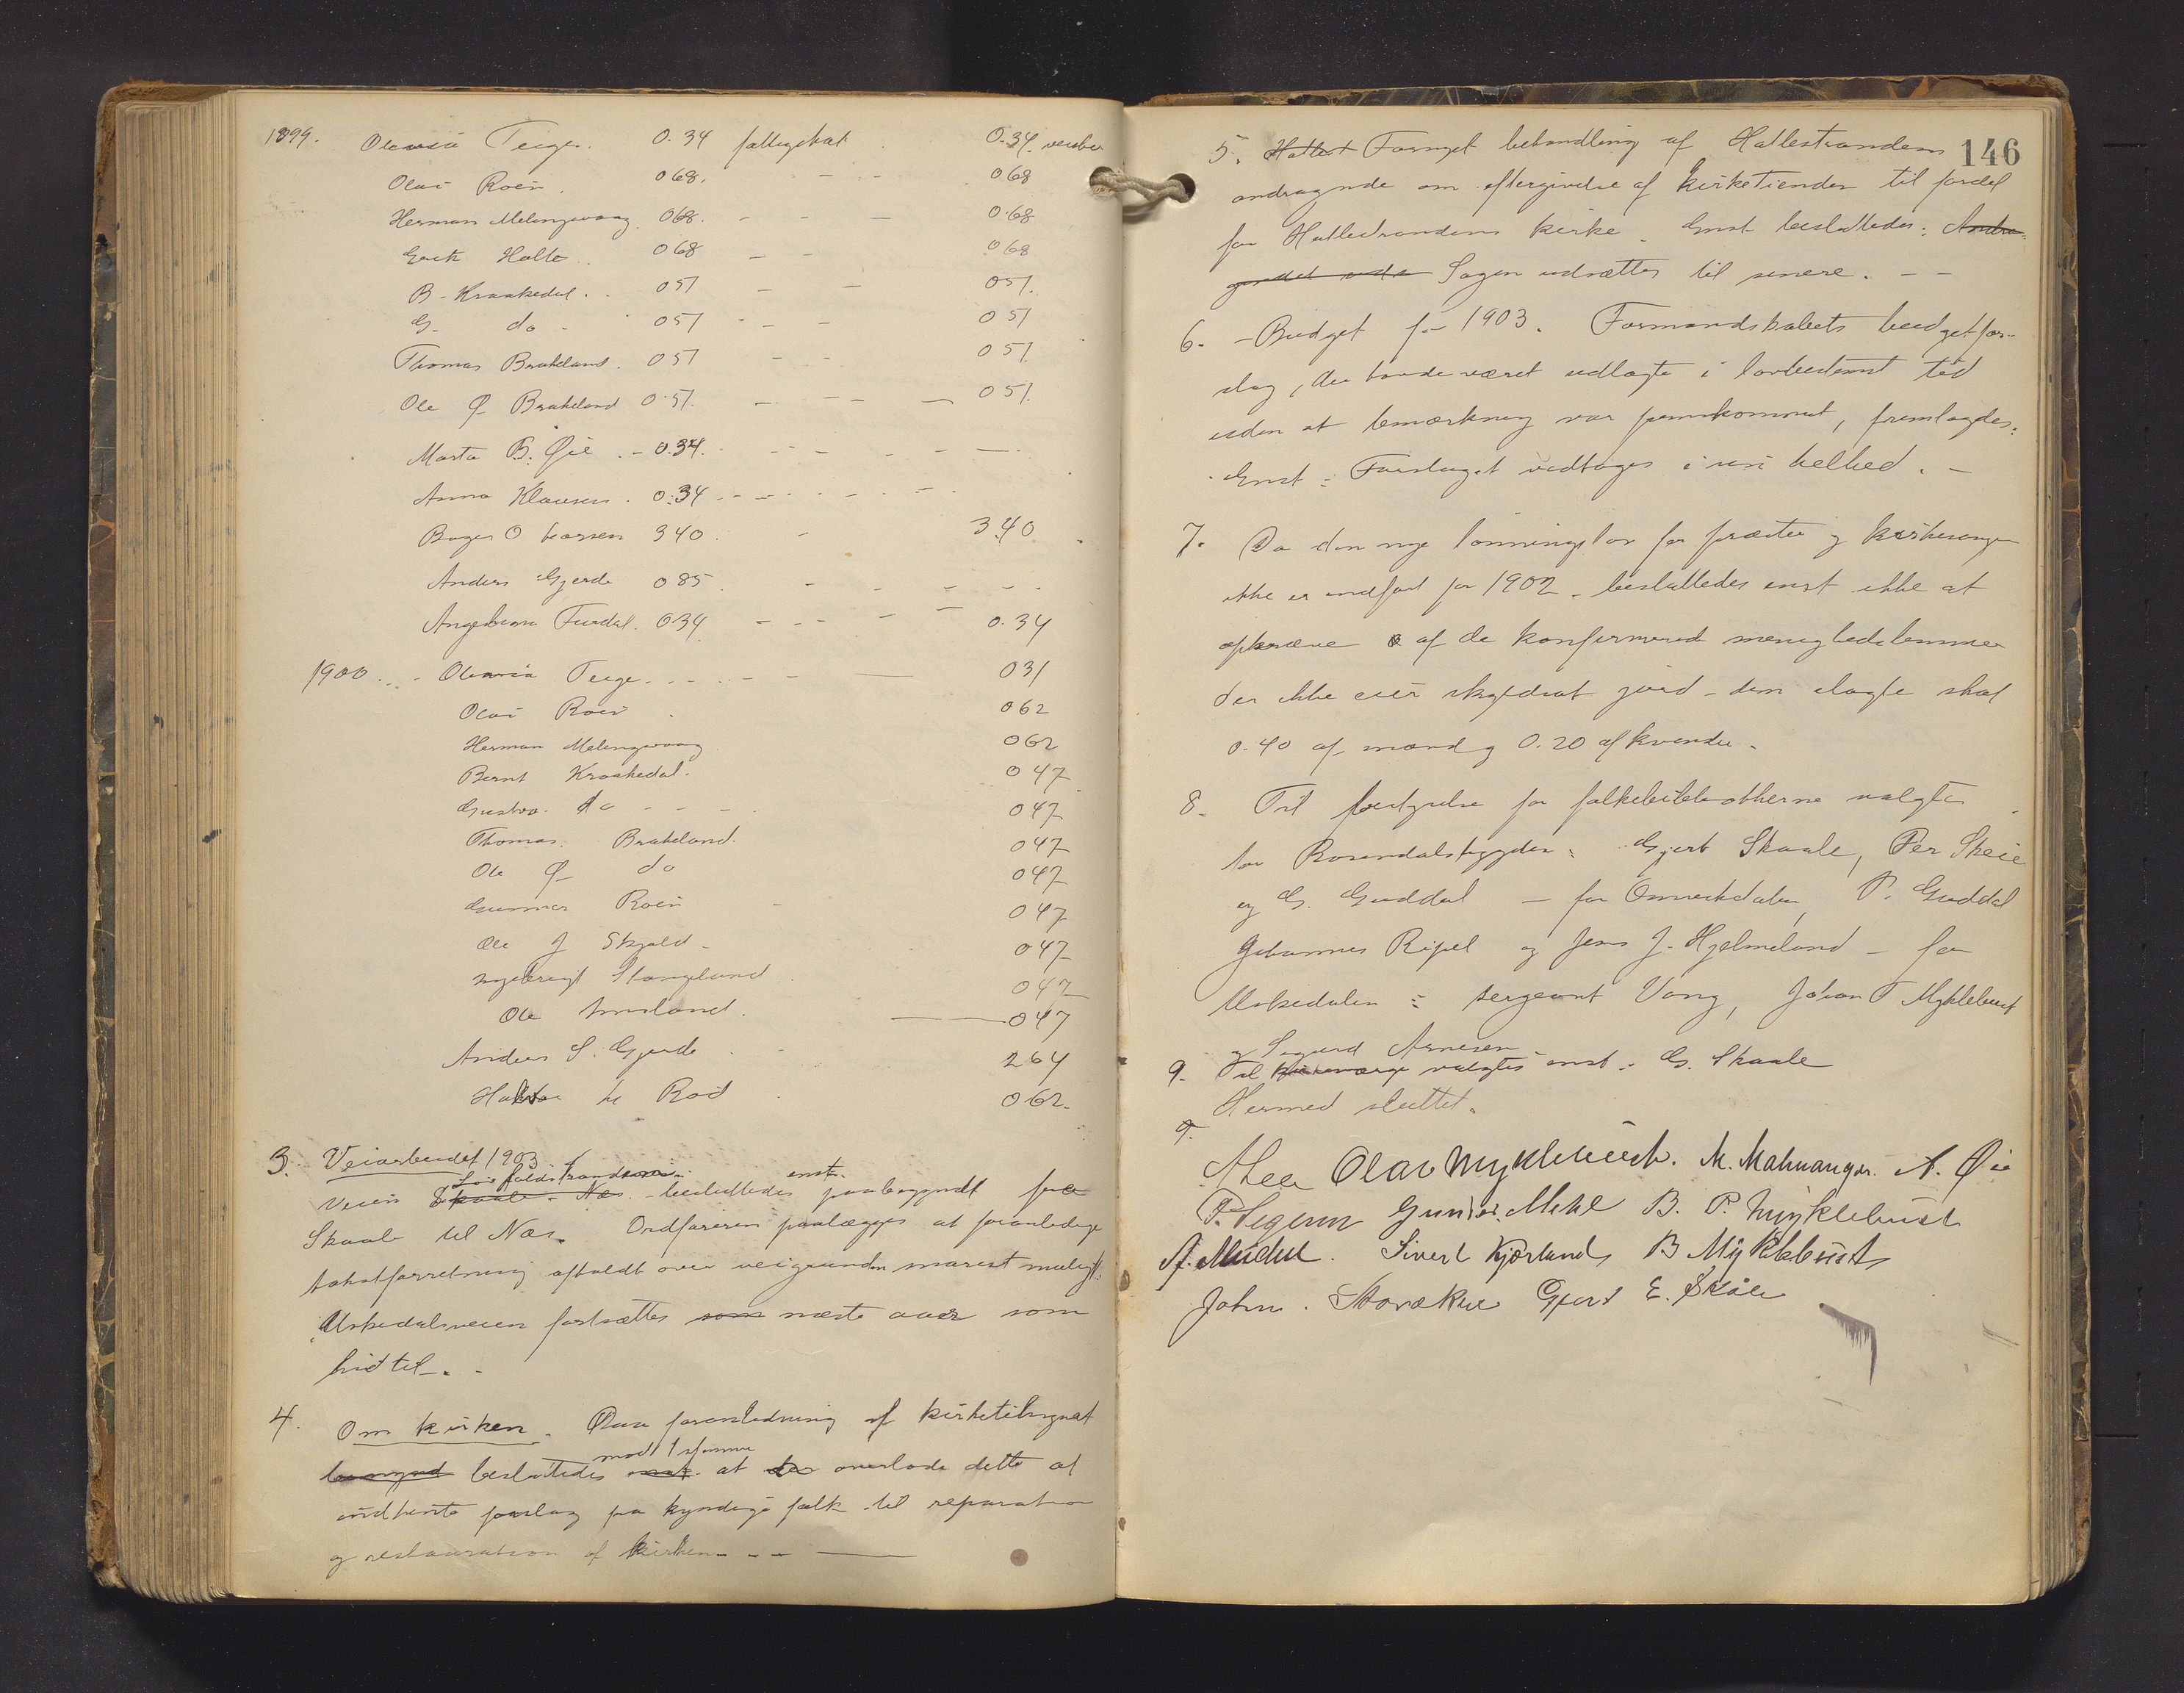 1899. Olewia Teige. 0.34 fattigskat 0.34. veiskat
Olai Roen. 068. - - 068
Herman Melingsvaag 068. - - - 0.68
Erik Halte 068 - - 068
B. Kraakedal. 051 - - 051.
G. do - 051 - - 051
Thomas Brakeland. 051 - - 051.
Ole Ø Brakeland 0.51. - - - 051.
Marta B. Øie - 0.34. - - - - -
Anna Klausen. 0.34 - - - - -
Birger O Larsen 340. - 3.40
Anders Gjerde 085. - - - -
Ingeborg Furdal. 034 - - - 0.34
1900. - Olewia Teige. - - - 031
Olai Roen 062
Herman Melingsvaag 062
Bernt Kraakedal. 047
Gustav. do - - - 047
Thomas. Brakeland. 047
Ole Ø do 047
Gunnar Roen - 047
Ole J Skjold - 047
Ingebregt Stangeland 047
Ole Omsland. 047
Anders S. Gjerde 264
Roen 062.
3. Veiarbeidet 1903.
enst.
Veien Skaale - Nes - besluttedes paabegyndt fra
Skaale til Nes. Ordføreren paalægges at foranledige
takstforretning afholdt over veigrunden snarest muligt.
Uskedalsveien fortsættes som næste aar som
hidtil. -
4. Om kirken. Paa foranledning af kirketilsynet
mod 1 stemme
besluttedes enst. at overlade dette at
indhente forslag fra kyndige folk til reparation
og restauration af kirken - - -
146
5. Hattest Fornyet behandling af Hattestrandens
andragende om eftergivelse af kirketienden til fordel
for Hattestrandens kirke. Enst besluttedes: Andra-
gendet Sagen udsættes til senere. - -
6. - Budget for 1903. Formandskabets budgetfor-
slag, der havde været udlagte i lovbestemt tid
uden at bemærkning var fremkommet, fremlagdes:
Enst: Forslaget vedtages i sin helhed. -
7. Da den nye lønningslov for præster og kirkesanger
ikke er indført for 1902 - besluttedes enst ikke at
opkræve af de konfirmered menighedslemmer
der ikke eier skyldsat jord - den ilagte skat
0.40 af mænd og 0.20 af kvinder.
8. Til bestyrelse for folkebibliothekerne valgtes
for Rosendalsbygden: Gjert Skaale, Per Skeie
og G. Guddal - for Omvikdalen, P. Guddal
Johannes Ripel og Jens J. Hjelmeland - for
Uskedalen: sergeant Vang, Johan T Myklebust
og Sigurd Arnesen
9. Til kirkeværge valgtes enst: G. Skaale
Hermed sluttet.
9.
Olav Myklebust. M. Malmanger. A. Øie
P. Gunnar Mehl B. P. Myklebust
Sivert Kjærland B Myklebust
John. Gjert E. Skåle